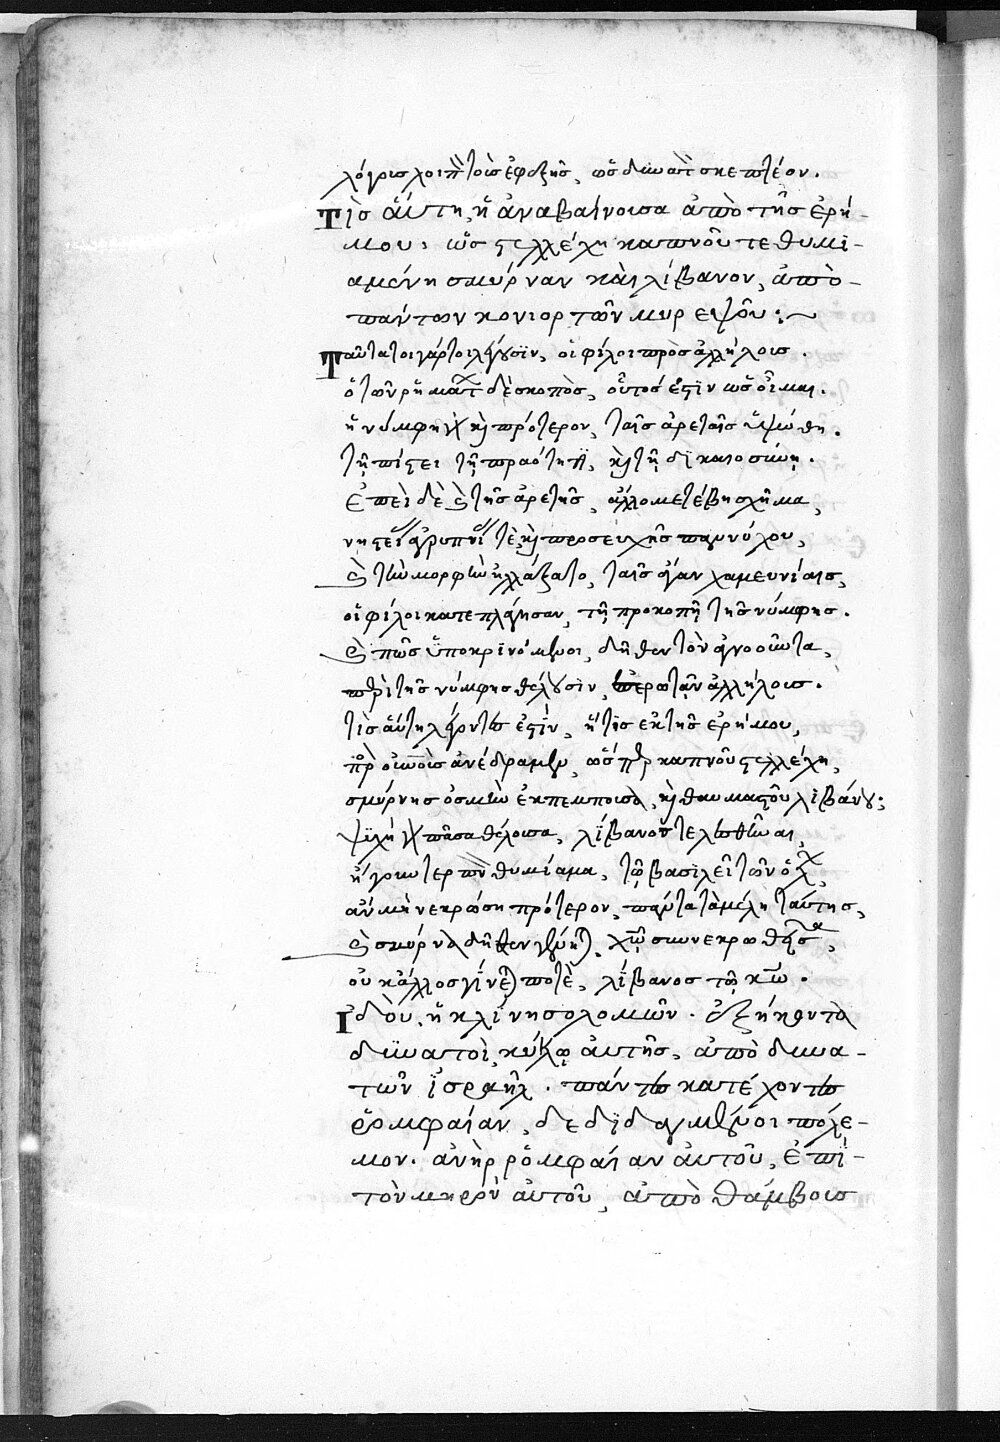 λόγοις λοιπὸν τοῖς ἐφεξῆς, ὡς δυνατὸν σκεπτέον.
Τίς αὕτη ἡ ἀναβαίνουσα ἀπὸ τῆς ἐρή-
μου, ὡς στελέχη καπνοῦ τεθυμι-
αμένη σμύρναν καὶ λίβανον, ἀπὸ
πάντων κονιορτῶν μυρεψοῦ;
Ταῦτα τοιγάρτοι λέγουσιν, οἱ φίλοι πρὸς ἀλλήλους.
ὁ τῶν ῥημάτων δὲ σκοπὸς, οὗτός ἐστιν ὡς οἶμαι.
ἡ νύμφη γὰρ καὶ πρότερον, ταῖς ἀρεταῖς ὑψώθη.
τῇ πίστει τῇ πραότητι, καὶ τῇ δικαιοσύνη.
ἐπεὶ δὲ καὶ τῆς ἀρετῆς, ἄλλο μετέβη σχῆμα,
νηστείαις ἀγρυπνίαις τὲ καὶ προσευχῆς παννύχου,
καὶ τὴν μορφὴν ἠλλάξατο, ταῖς ἄγαν χαμευνίαις,
οἱ φίλοι κατεπλάγησαν, τῇ προκοπῇ τῆς νύμφης.
καὶ πῶς ὑποκρινόμενοι, δῆθεν τὸν ἀγνοοῦντα,
περὶ τῆς νύμφης θέλουσιν, ἐρωτᾶν ἀλλήλους.
τίς αὕτη λέγοντες ἐστὶν, ἥτις ἐκ τῆς ἐρήμου,
πρὸς οὐρανοὺς ἀνέδραμεν, ὥσπερ καπνοῦ στελέχη,
σμύρνης ὀσμὴν ἐκπέμπουσα, καὶ θαυμαστοῦ λιβάνου;
ψυχὴ γὰρ πᾶσα θέλουσα, λίβανος τελεσθῆναι,
ἢ γοῦν τερπνὸν θυμίαμα, τῷ βασιλεῖ τῶν ὅλων,
ἂν μὴ νεκρώση πρότερον, πάντα τὰ μέλη ταύτης,
καὶ σμύρνα δῆθεν γένηται, χριστῷ συννεκρωθεῖσα,
οὐκ ἄλλος γίνεται ποτὲ, λίβανος τῷ κυρίω.
Ἰδοὺ ἡ κλίνη σολομῶν. ἑξήκοντα
δυνατοὶ κύκλῳ αὐτῆς, ἀπὸ δυνα-
τῶν ἰσραήλ. πάντες κατέχοντες
ῥομφαίαν, δεδιδαγμένοι πόλε-
μον. ἀνὴρ ῥομφαίαν αὐτοῦ, ἐπὶ
τὸν μηρὸν αὐτοῦ, ἀπὸ θάμβους